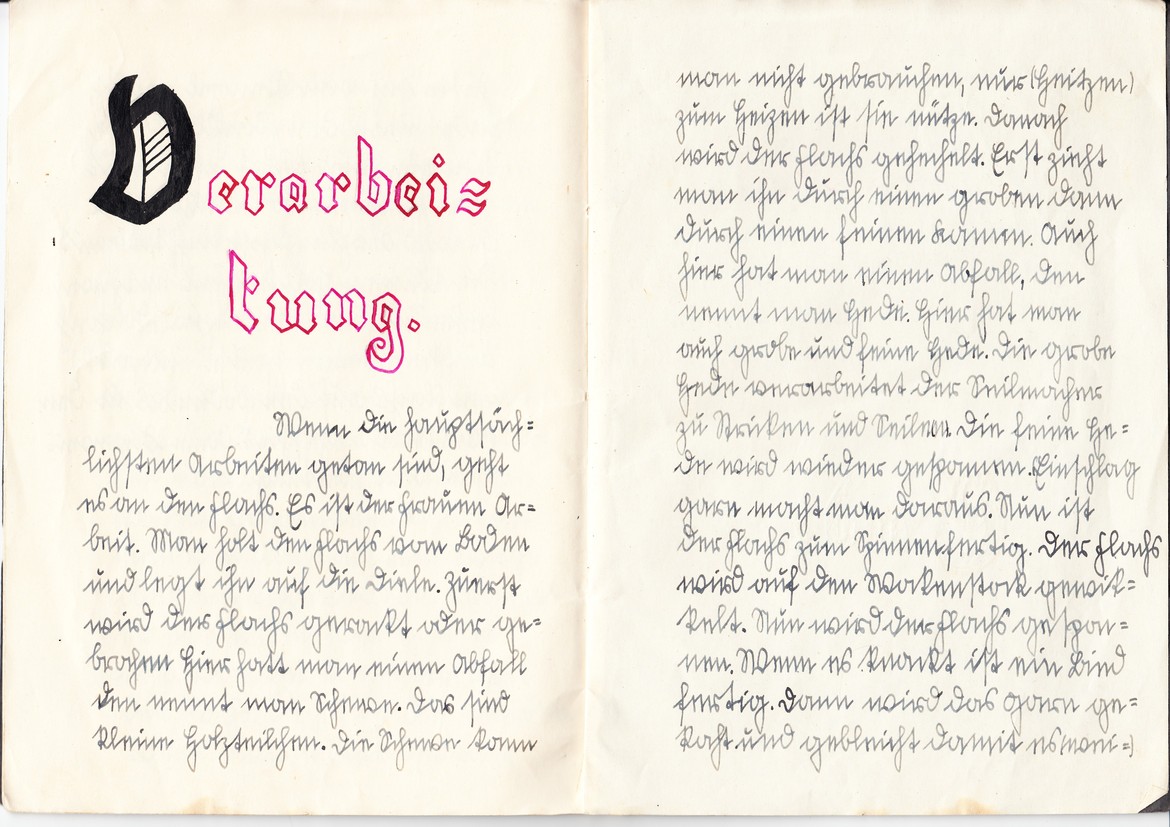 Verarbei=
tung.
Wenn die hauptsäch=
lichsten Arbeiten getan sind, geht
es an den Flachs. Es ist der Frauen Ar=
beit. Man holt den Flachs vom Boden
und legt ihn auf die Diele. Zuerst
wird der Flachs gerackt oder ge=
brochen Hier hatt man einen Abfall
den nennt man Schewe. Das sind
kleine Holzteilchen. Die Schewe kann
man nicht gebrauchen, nur (Heitzen)
zum Heizen ist sie nütze. Danach
wird der Flachs gehechelt. Erst zieht
man ihn durch einen groben dann
durch einen feinen Kamen. Auch
hier hat man einen Abfall, den
nennt man Hede. Hier hat man
auch grobe und feine Hede. Die grobe
Hede verarbeitet der Seilmacher
zu Stricken und Seilen. Die feine He=
de wird wieder gesponnen. Einschlag
garn macht man daraus. Nun ist
der Flachs zum Spinnen fertig. Der Flachs
wird auf den Wokenstock gewik=
kelt. Nun wird der Flachs gespon=
nen. Wenn es knackt ist ein Bind
fertig. Dann wird das Garn ge=
kocht und gebleicht damit es (wei=)